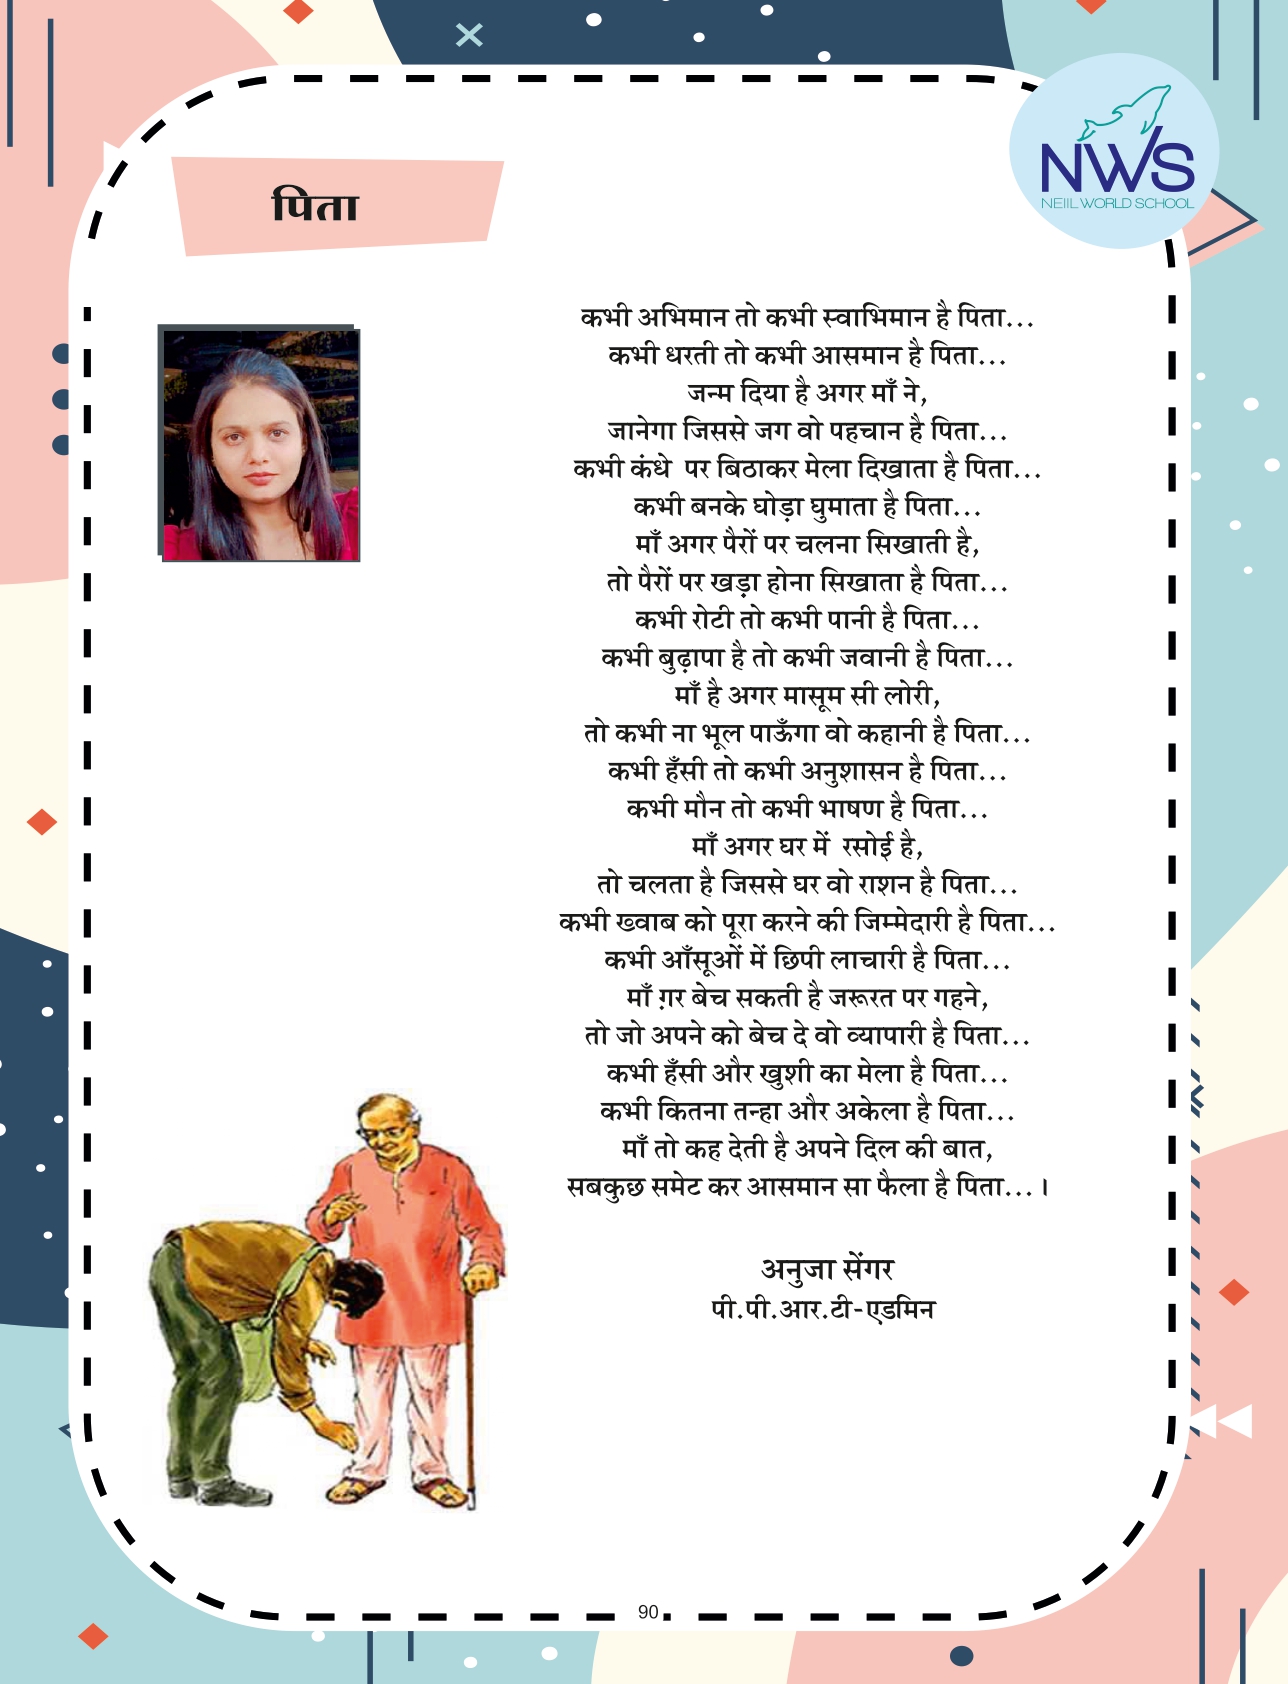 NWS
NEIIL WORLD SCHOOL
पिता
कभी अभिमान तो कभी स्वाभिमान है पिता...
कभी धरती तो कभी आसमान है पिता...
जन्म दिया है अगर माँ ने,
जानेगा जिससे जग वो पहचान है पिता...
कभी कंधे पर बिठाकर मेला दिखाता है पिता...
कभी बनके घोड़ा घुमाता है पिता...
माँ अगर पैरों पर चलना सिखाती है,
तो पैरों पर खड़ा होना सिखाता है पिता...
कभी रोटी तो कभी पानी है पिता...
कभी बुढ़ापा है तो कभी जवानी है पिता...
माँ है अगर मासूम सी लोरी,
तो कभी ना भूल पाऊँगा वो कहानी है पिता...
कभी हँसी तो कभी अनुशासन है पिता...
कभी मौन तो कभी भाषण है पिता...
माँ अगर घर में रसोई है,
तो चलता है जिससे घर वो राशन है पिता...
कभी ख्वाब को पूरा करने की जिम्मेदारी है पिता...
कभी आँसूओं में छिपी लाचारी है पिता...
माँ ग़र बेच सकती है जरूरत पर गहने,
तो जो अपने को बेच दे वो व्यापारी है पिता...
कभी हँसी और खुशी का मेला है पिता...
कभी कितना तन्हा और अकेला है पिता...
माँ तो कह देती है अपने दिल की बात,
सबकुछ समेट कर आसमान सा फैला है पिता...।
अनुजा सेंगर
पी.पी.आर.टी-एडमिन
90